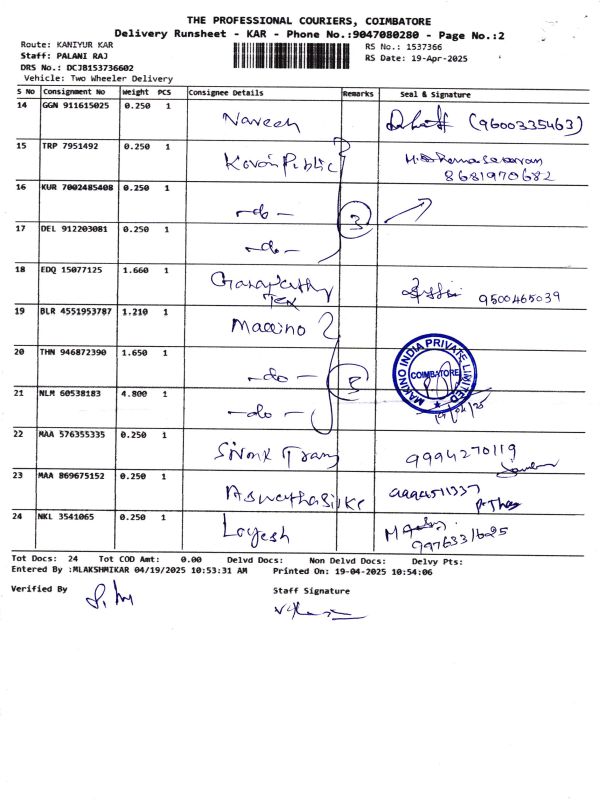 THE PROFESSIONAL COURIERS, COIMBATORE
Delivery Runsheet - KAR - Phone No.:9047080280 - Page No.:2
Route: KANIYUR KAR
RS No.: 1537366
Staff: PALANI RAJ
RS Date: 19-Apr-2025
DRS No.: DCJB153736602
Vehicle: Two Wheeler Delivery
S No Consignment No Weight PCS Consignee Details Remarks Seal & Signature
14 GGN 911615025 0.250 1 Naveen (9600335463)
15 TRP 7951492 0.250 1 Kovai Public
8681970682
16 KUR 7002485408 0.250 1 -do-
3
17 DEL 912203081 0.250 1 -do-
18 EDQ 15077125 1.660 1 Ganapathy Tex 9500465039
19 BLR 4551953787 1.210 1 Maccino
20 THN 946872390 1.650 1 -do- MAKINO INDIA PRIVATE LIMITED COIMBATORE
21 NLM 60538183 4.800 1 -do- 19/04/25
22 MAA 576355335 0.250 1 9994270119
23 MAA 869675152 0.250 1
24 NKL 3541065 0.250 1 Logesh
Tot Docs: 24 Tot COD Amt: 0.00 Delvd Docs: Non Delvd Docs: Delvy Pts:
Entered By :MLAKSHMIKAR 04/19/2025 10:53:31 AM Printed On: 19-04-2025 10:54:06
Verified By
Staff Signature